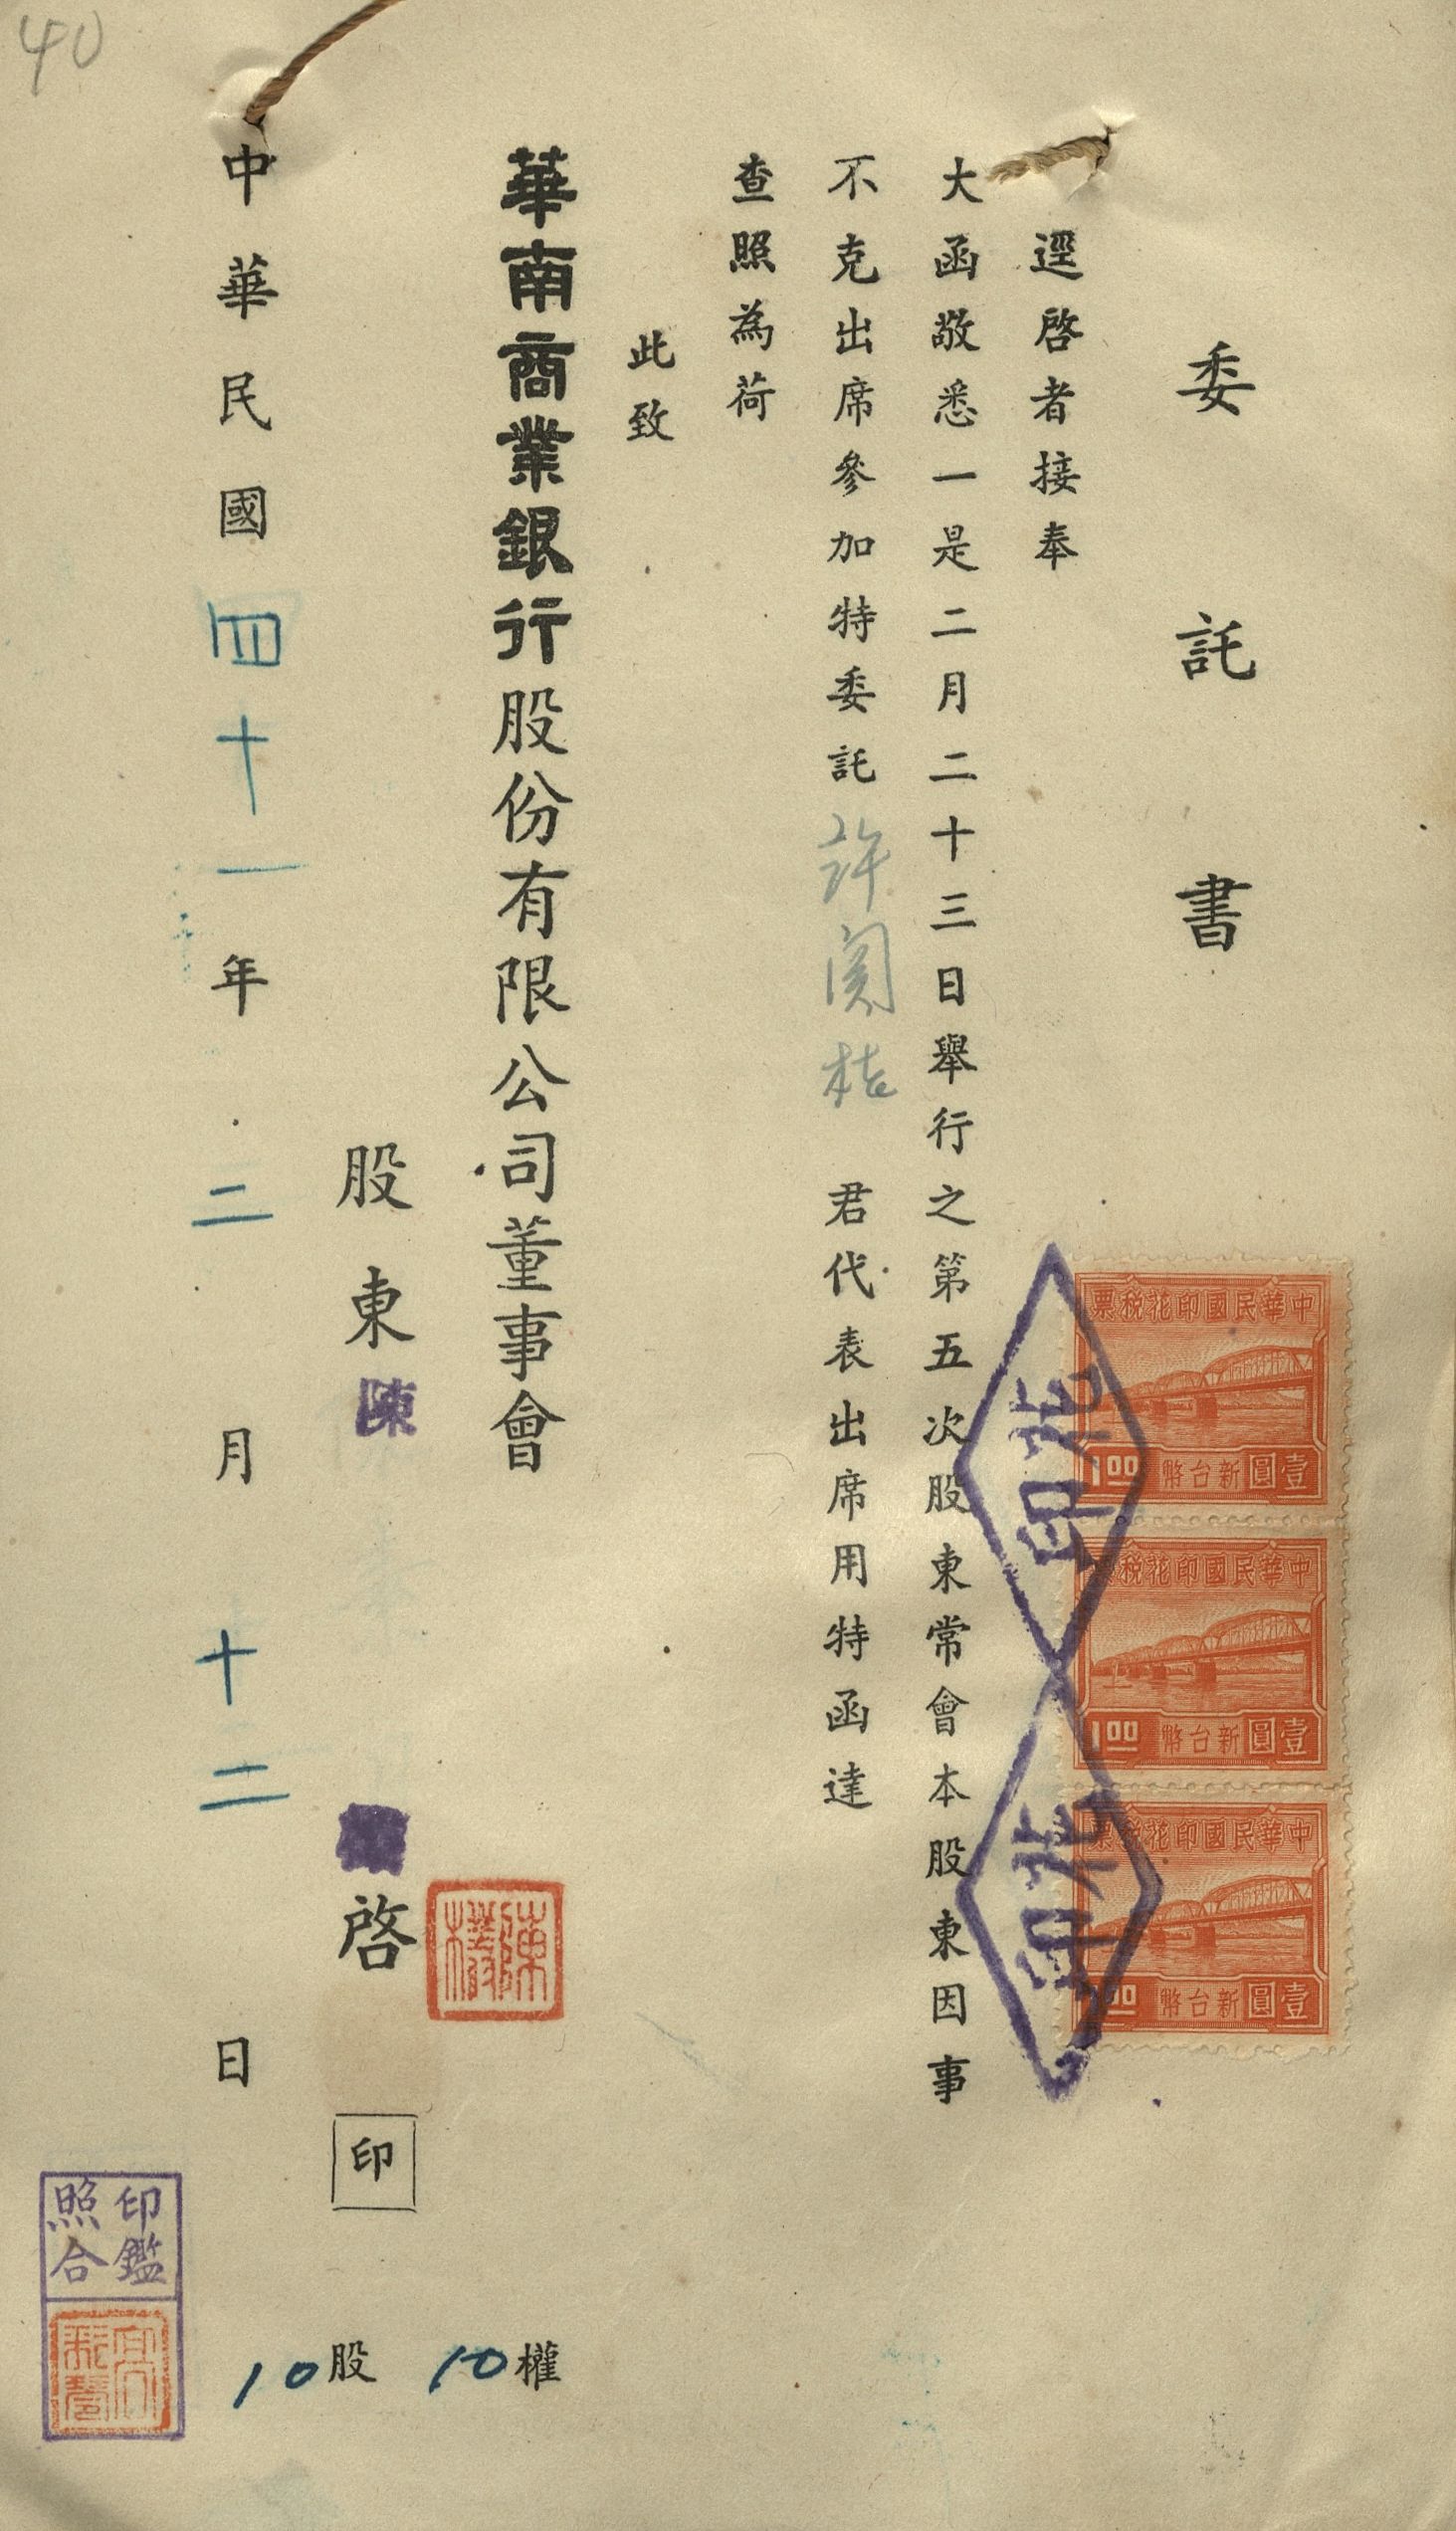 40
委託書
逕啓者接奉
大函敬悉一是二月二十三日舉行之第五次股東常會本股東因事
不克出席參加特委託許 君代表出席用特函達
查照為荷
此致
華南商業銀行股份有限公司董事會
股東陳 啓 印
10權
10股
中華民國四十一年二月十二日
中華民國印花稅票
壹圓新台幣
1.00
中華民國印花稅票
壹圓新台幣
1.00
中華民國印花稅票
壹圓新台幣
1.00
印花
印花
印鑑
照合